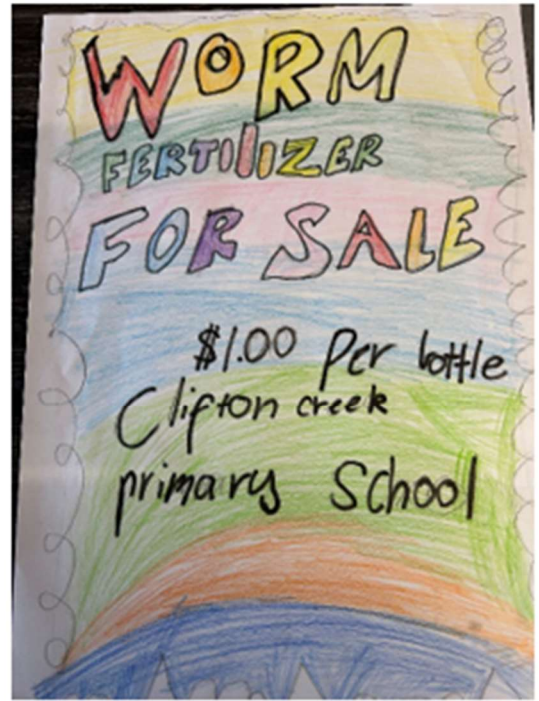 WORM
FERTILIZER
FOR SALE
$1.00 Per bottle
Clifton creek
primary School